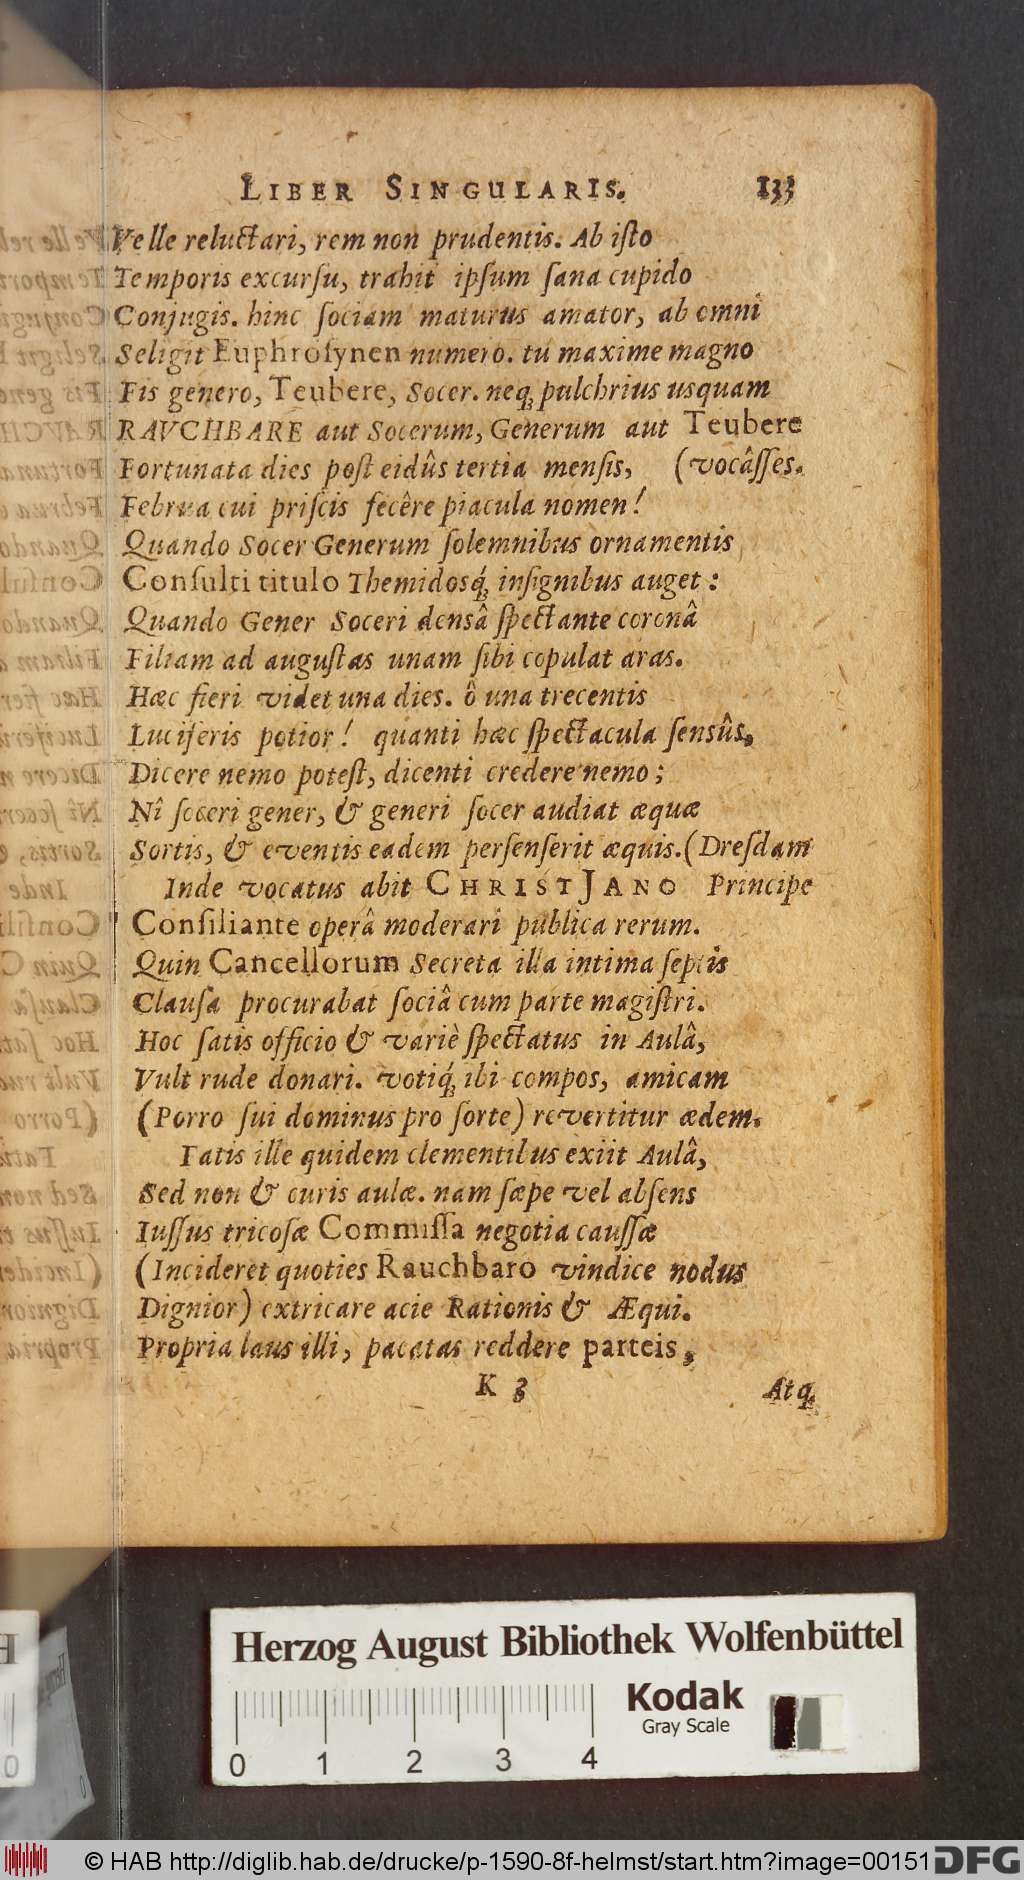 LIBER SINGULARIS. 133
Velle reluctari, rem non prudentis. Ab iſto
Temporis excurſu, trahit ipſum ſana cupido
Conjugis. hinc ſociam maturus amator, ab omni
Seligit Euphroſynen numero. tu maxime magno
Fis genero, Teubere, Socer. neq; pulchrius usquam
RAVCHBARE aut Socerum, Generum aut Teubere
Fortunata dies poſt eidûs tertia menſis, (vocâſſes.
Februa cui priſcis fecêre piacula nomen!
Quando Socer Generum ſolemnibus ornamentis
Conſulti titulo Themidosq́; inſignibus auget:
Quando Gener Soceri densâ ſpectante coronâ
Filiam ad auguſtas unam ſibi copulat aras.
Hæc fieri videt una dies. ô una trecentis
Luciferis potior! quanti hæc ſpectacula ſensûs,
Dicere nemo poteſt, dicenti credere nemo;
Nî ſoceri gener, & generi ſocer audiat æquæ
Sortis, & eventis eadem perſenſerit æquis. (Dreſdam
Inde vocatus abit CHRISTJANO Principe
Conſiliante operâ moderari publica rerum.
Quin Cancellorum Secreta illa intima ſeptis
Clauſa procurabat ſociâ cum parte magiſtri.
Hoc ſatis officio & variè ſpectatus in Aulâ,
Vult rude donari. votiq́; ibi compos, amicam
(Porro ſui dominus pro ſorte) revertitur ædem.
Fatis ille quidem clementibus exiit Aulâ,
Sed non & curis aulæ. nam ſæpe vel abſens
Iuſſus tricoſæ Commiſſa negotia cauſſæ
(Incideret quoties Rauchbaro vindice nodus
Dignior) extricare acie Rationis & Æqui.
Propria laus illi, pacatas reddere parteis,
K 3 Atq;
Herzog August Bibliothek Wolfenbüttel
Kodak
Gray Scale
0 1 2 3 4
© HAB http://diglib.hab.de/drucke/p-1590-8f-helmst/start.htm?image=00151
DFG